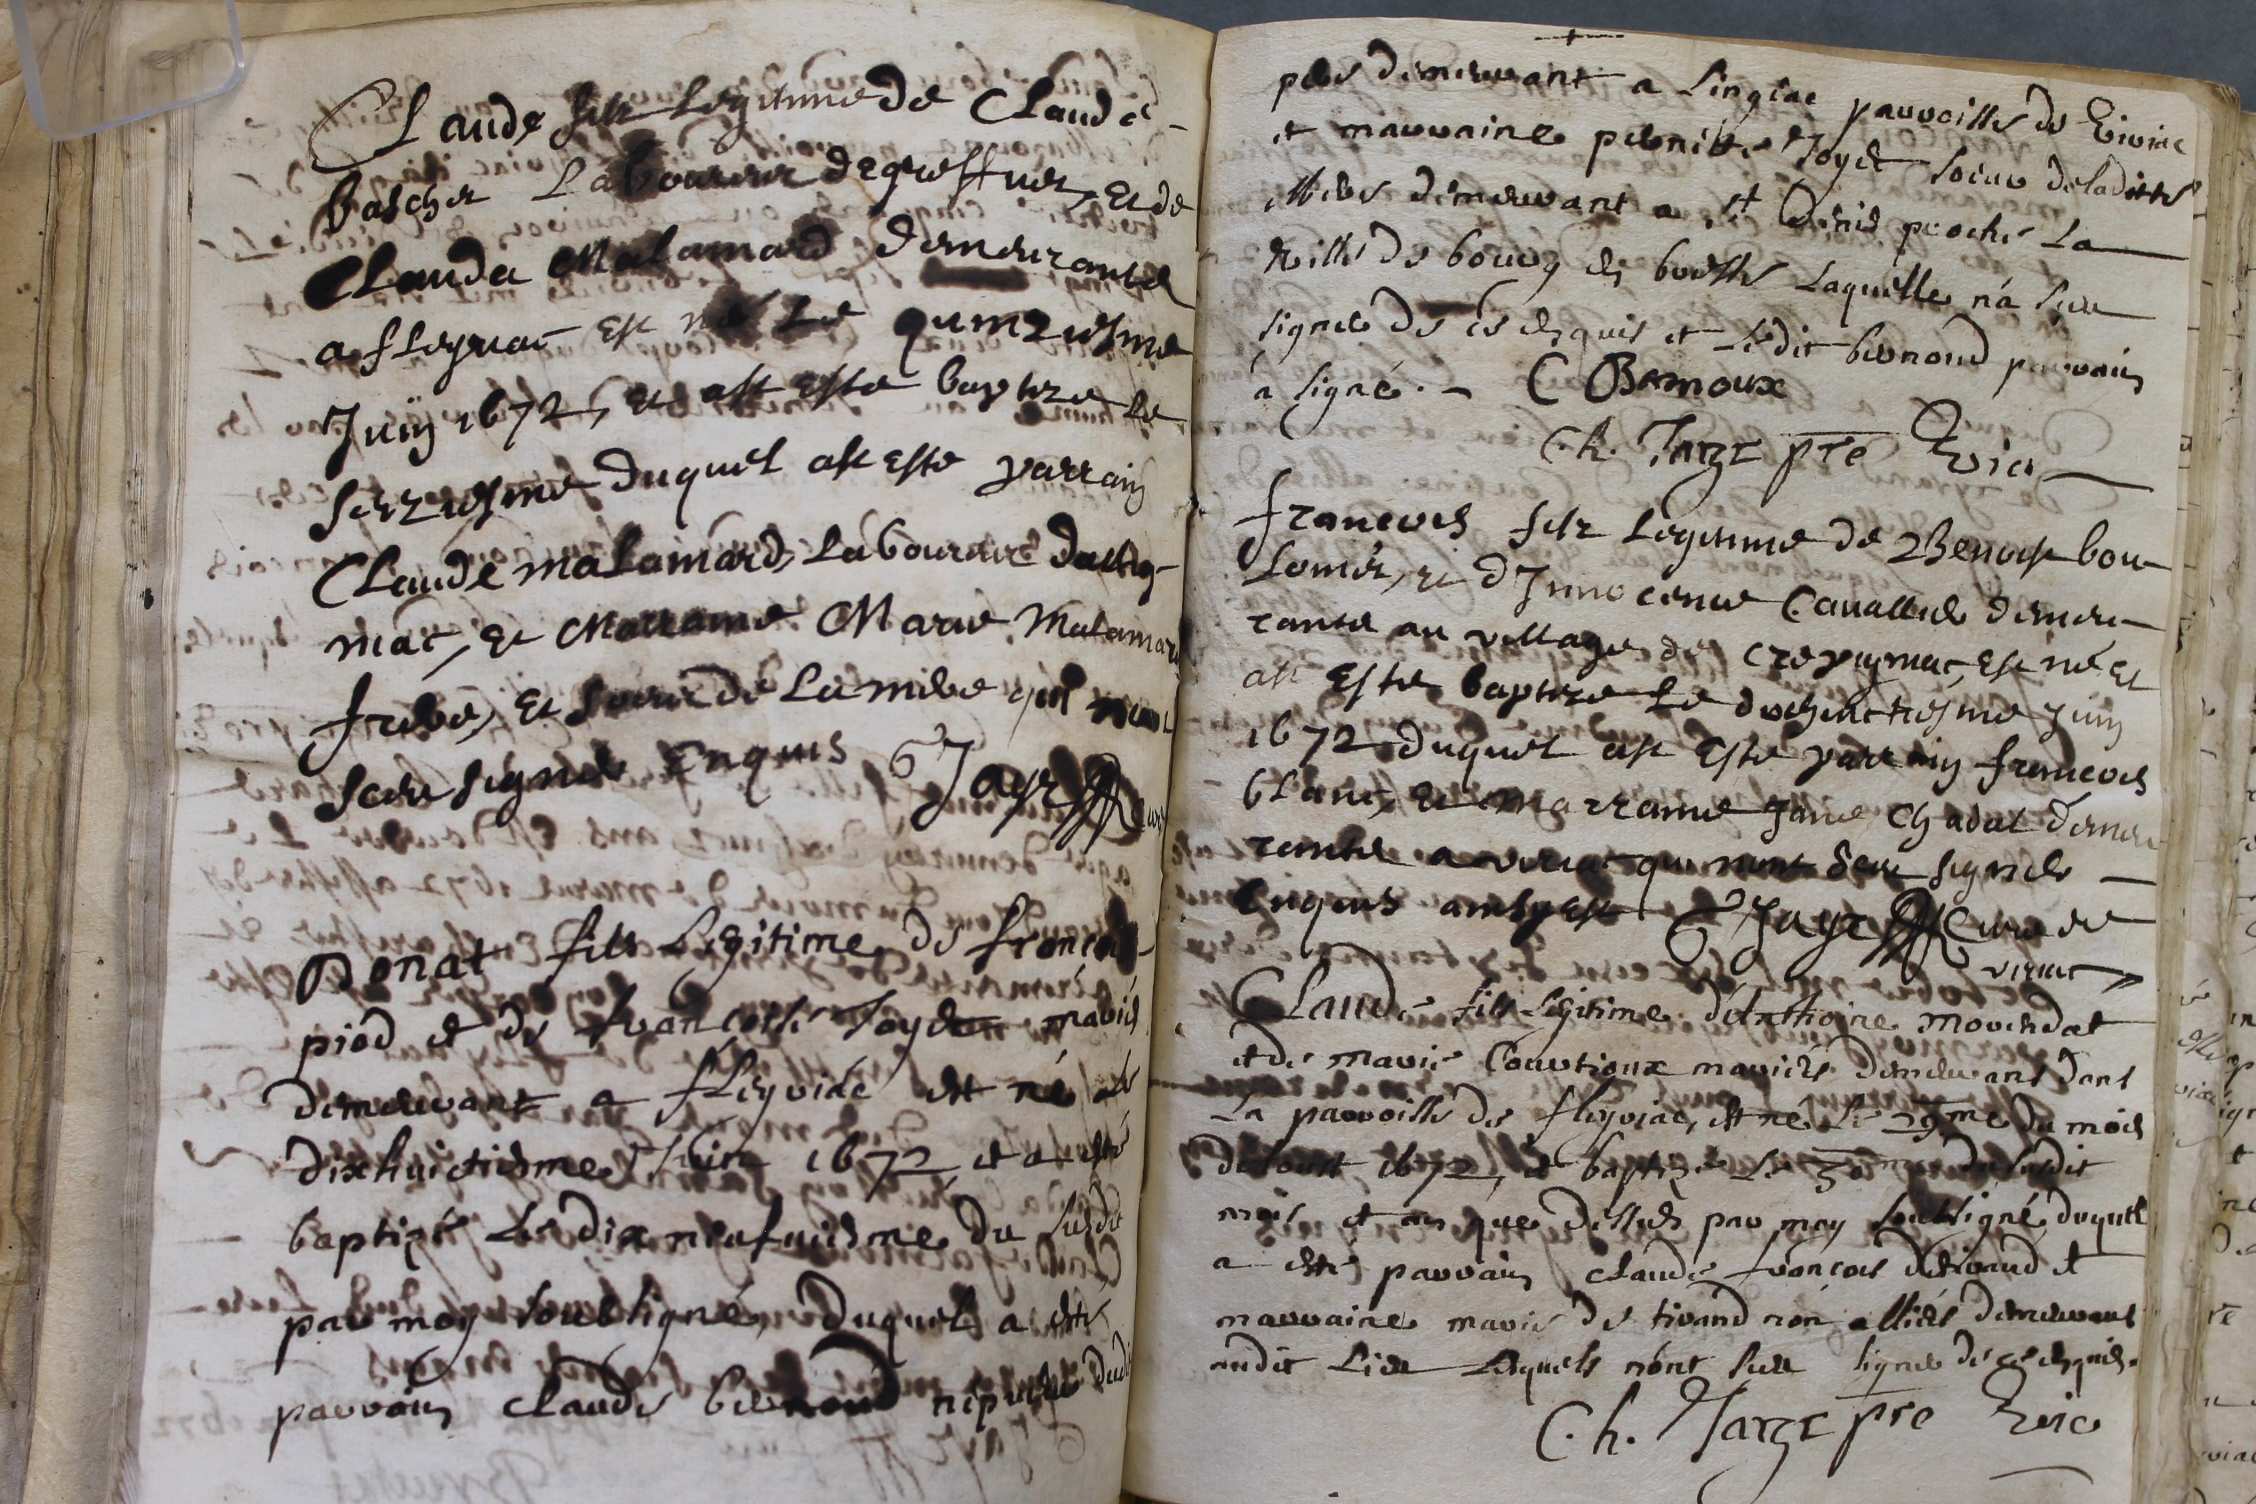 Claude filz Legitime de Claude
baschet Laboureur de greffiet, et de
Clauda Malamard demeurantz
a fleyriac est né Le quinziesme
Juin 1672, et ast este baptize le
seiziesme duquel ast este parrain
Claude malamard, laboureur dattig-
mac, et Marraine Marie Malamard
frere, et soeur de La mere qui nont
sceu signer Enquis Jayr Curé
Donat filz Legitime de francois
piod et de francoise Joyet mariés
demeurant a fleyriac est né le
dixhuictiesme Juin 1672, et a esté
baptizé Le dix neufuiesme du susdit
par moy soubsigné, duquel a esté
parrain Claude bernoud dud
pere demeurant a Lingiac parroisse de Viriac
et marraine pernette Joyet soeur de laditte
demeurant a St Denis proche La
Ville de bourg en bresse Laquelle n'a sceu
signer de ce enquis et Ledit bernoud parrain
a signé. - C Bernoux
Ch. Jarze pre Vic
francois filz Legitime de Benoist bou-
Lomier, et d'Innocence Cavallier demeu-
rantz au village de crepigniac, est né et
ast Este baptize Le dixhuictiesme Juin
1672 duquel ast Este parrain francois
blanc, et Marraine Jane Chadal demeu
rantz a viriac qui nont sceu signer
Enquis ainsy est Jayr Curé de
viriac
Claude filz Legitime d'Anthoine mouchdat
et de marie Courtioux mariés demeurans dans
La parroisse de fleyriac, est né Le 29me du mois
daoust 1672, et baptizé Le 30 du susdit
mois et an que dessus par moy soubsigné, duquel
a esté parrain Claude francois de tirand et
marraine marie de tirand non alliés demeurans
audit Lieu Lesquels n'ont sceu signer de ce enquis.
Ch. Jarze pre Vic